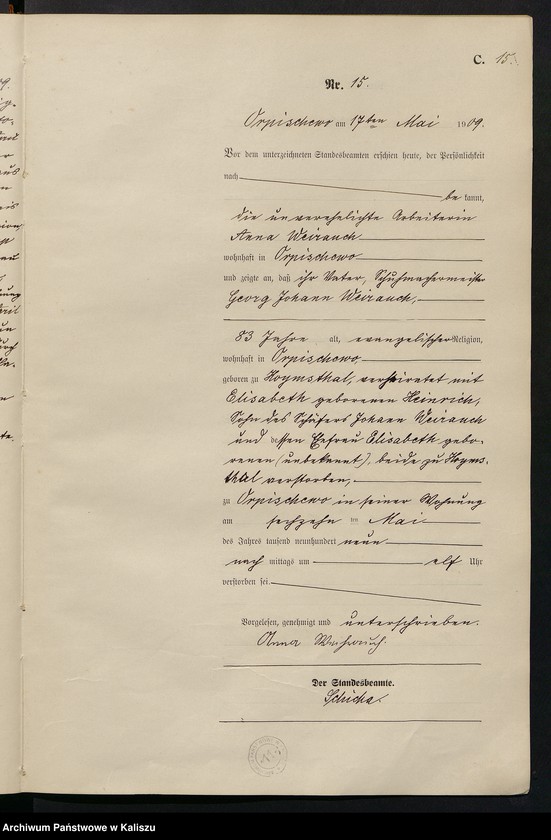 C. 15.
Nr. 15.
Orpischewo am 17ten Mai 1909.
Vor dem unterzeichneten Standesbeamten erschien heute, der Persönlichkeit
nach
be kannt,
die unverehelichte Arbeiterin
Anna Weirauch
wohnhaft in Orpischewo
und zeigte an, daß ihr Vater, Schuhmachermeister
Georg Johann Weirauch,
83 Jahre alt, evangelischer Religion,
wohnhaft in Orpischewo
geboren zu Hoymsthal, verheiratet mit
Elisabeth geborenen Heinrich,
Sohn des Schäfers Johann Weirauch
und dessen Ehefrau Elisabeth gebo-
renen (unbekannt), beide zu Hoyms-
thal verstorben,
zu Orpischewo in seiner Wohnung
am sechzehn ten Mai
des Jahres tausend neunhundert neun
nach mittags um elf Uhr
verstorben sei.
Vorgelesen, genehmigt und unterschrieben.
Anna
Der Standesbeamte.
Schicha.
Archiwum Państwowe w Kaliszu